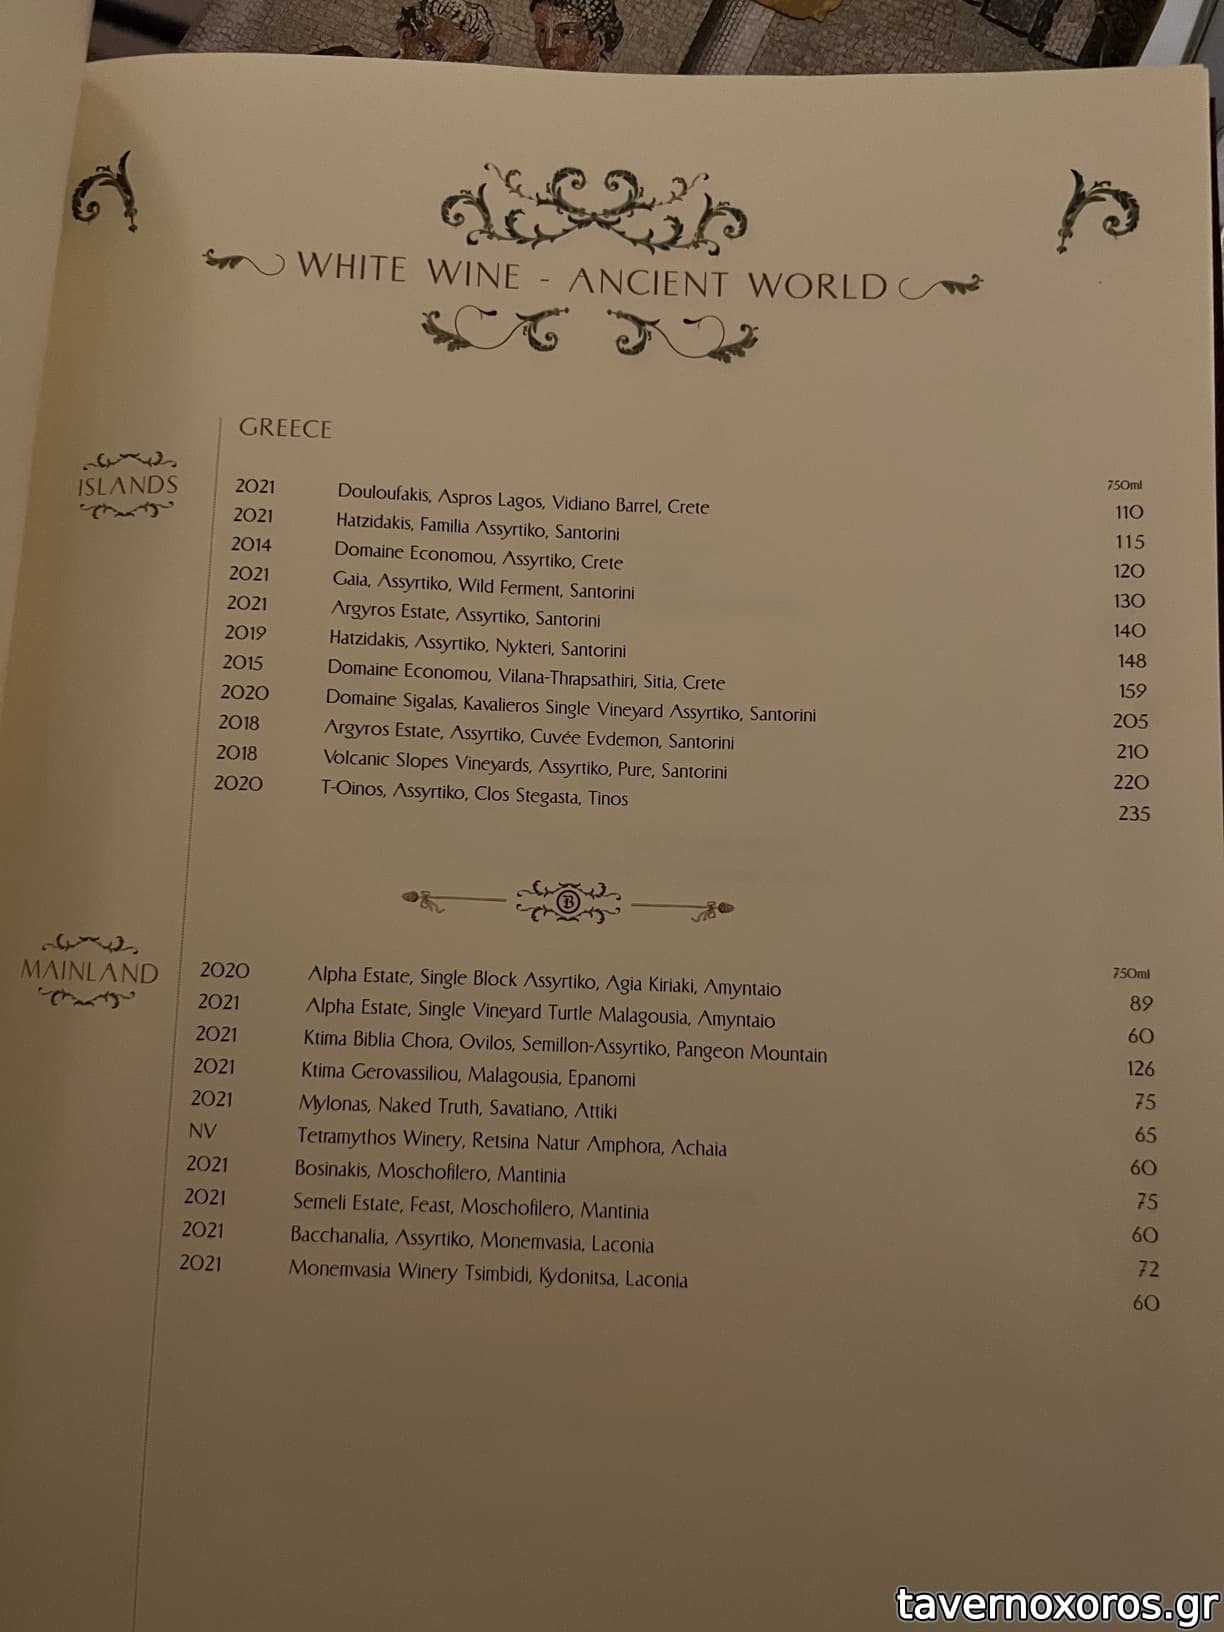 WHITE WINE - ANCIENT WORLD
GREECE
ISLANDS
750ml
2021 Douloufakis, Aspros Lagos, Vidiano Barrel, Crete 110
2021 Hatzidakis, Familia Assyrtiko, Santorini 115
2014 Domaine Economou, Assyrtiko, Crete 120
2021 Gaia, Assyrtiko, Wild Ferment, Santorini 130
2021 Argyros Estate, Assyrtiko, Santorini 140
2019 Hatzidakis, Assyrtiko, Nykteri, Santorini 148
2015 Domaine Economou, Vilana-Thrapsathiri, Sitia, Crete 159
2020 Domaine Sigalas, Kavalieros Single Vineyard Assyrtiko, Santorini 205
2018 Argyros Estate, Assyrtiko, Cuvée Evdemon, Santorini 210
2018 Volcanic Slopes Vineyards, Assyrtiko, Pure, Santorini 220
2020 T-Oinos, Assyrtiko, Clos Stegasta, Tinos 235
B
MAINLAND
750ml
2020 Alpha Estate, Single Block Assyrtiko, Agia Kiriaki, Amyntaio 89
2021 Alpha Estate, Single Vineyard Turtle Malagousia, Amyntaio 60
2021 Ktima Biblia Chora, Ovilos, Semillon-Assyrtiko, Pangeon Mountain 126
2021 Ktima Gerovassiliou, Malagousia, Epanomi 75
2021 Mylonas, Naked Truth, Savatiano, Attiki 65
NV Tetramythos Winery, Retsina Natur Amphora, Achaia 60
2021 Bosinakis, Moschofilero, Mantinia 75
2021 Semeli Estate, Feast, Moschofilero, Mantinia 60
2021 Bacchanalia, Assyrtiko, Monemvasia, Laconia 72
2021 Monemvasia Winery Tsimbidi, Kydonitsa, Laconia 60
tavernoxoros.gr